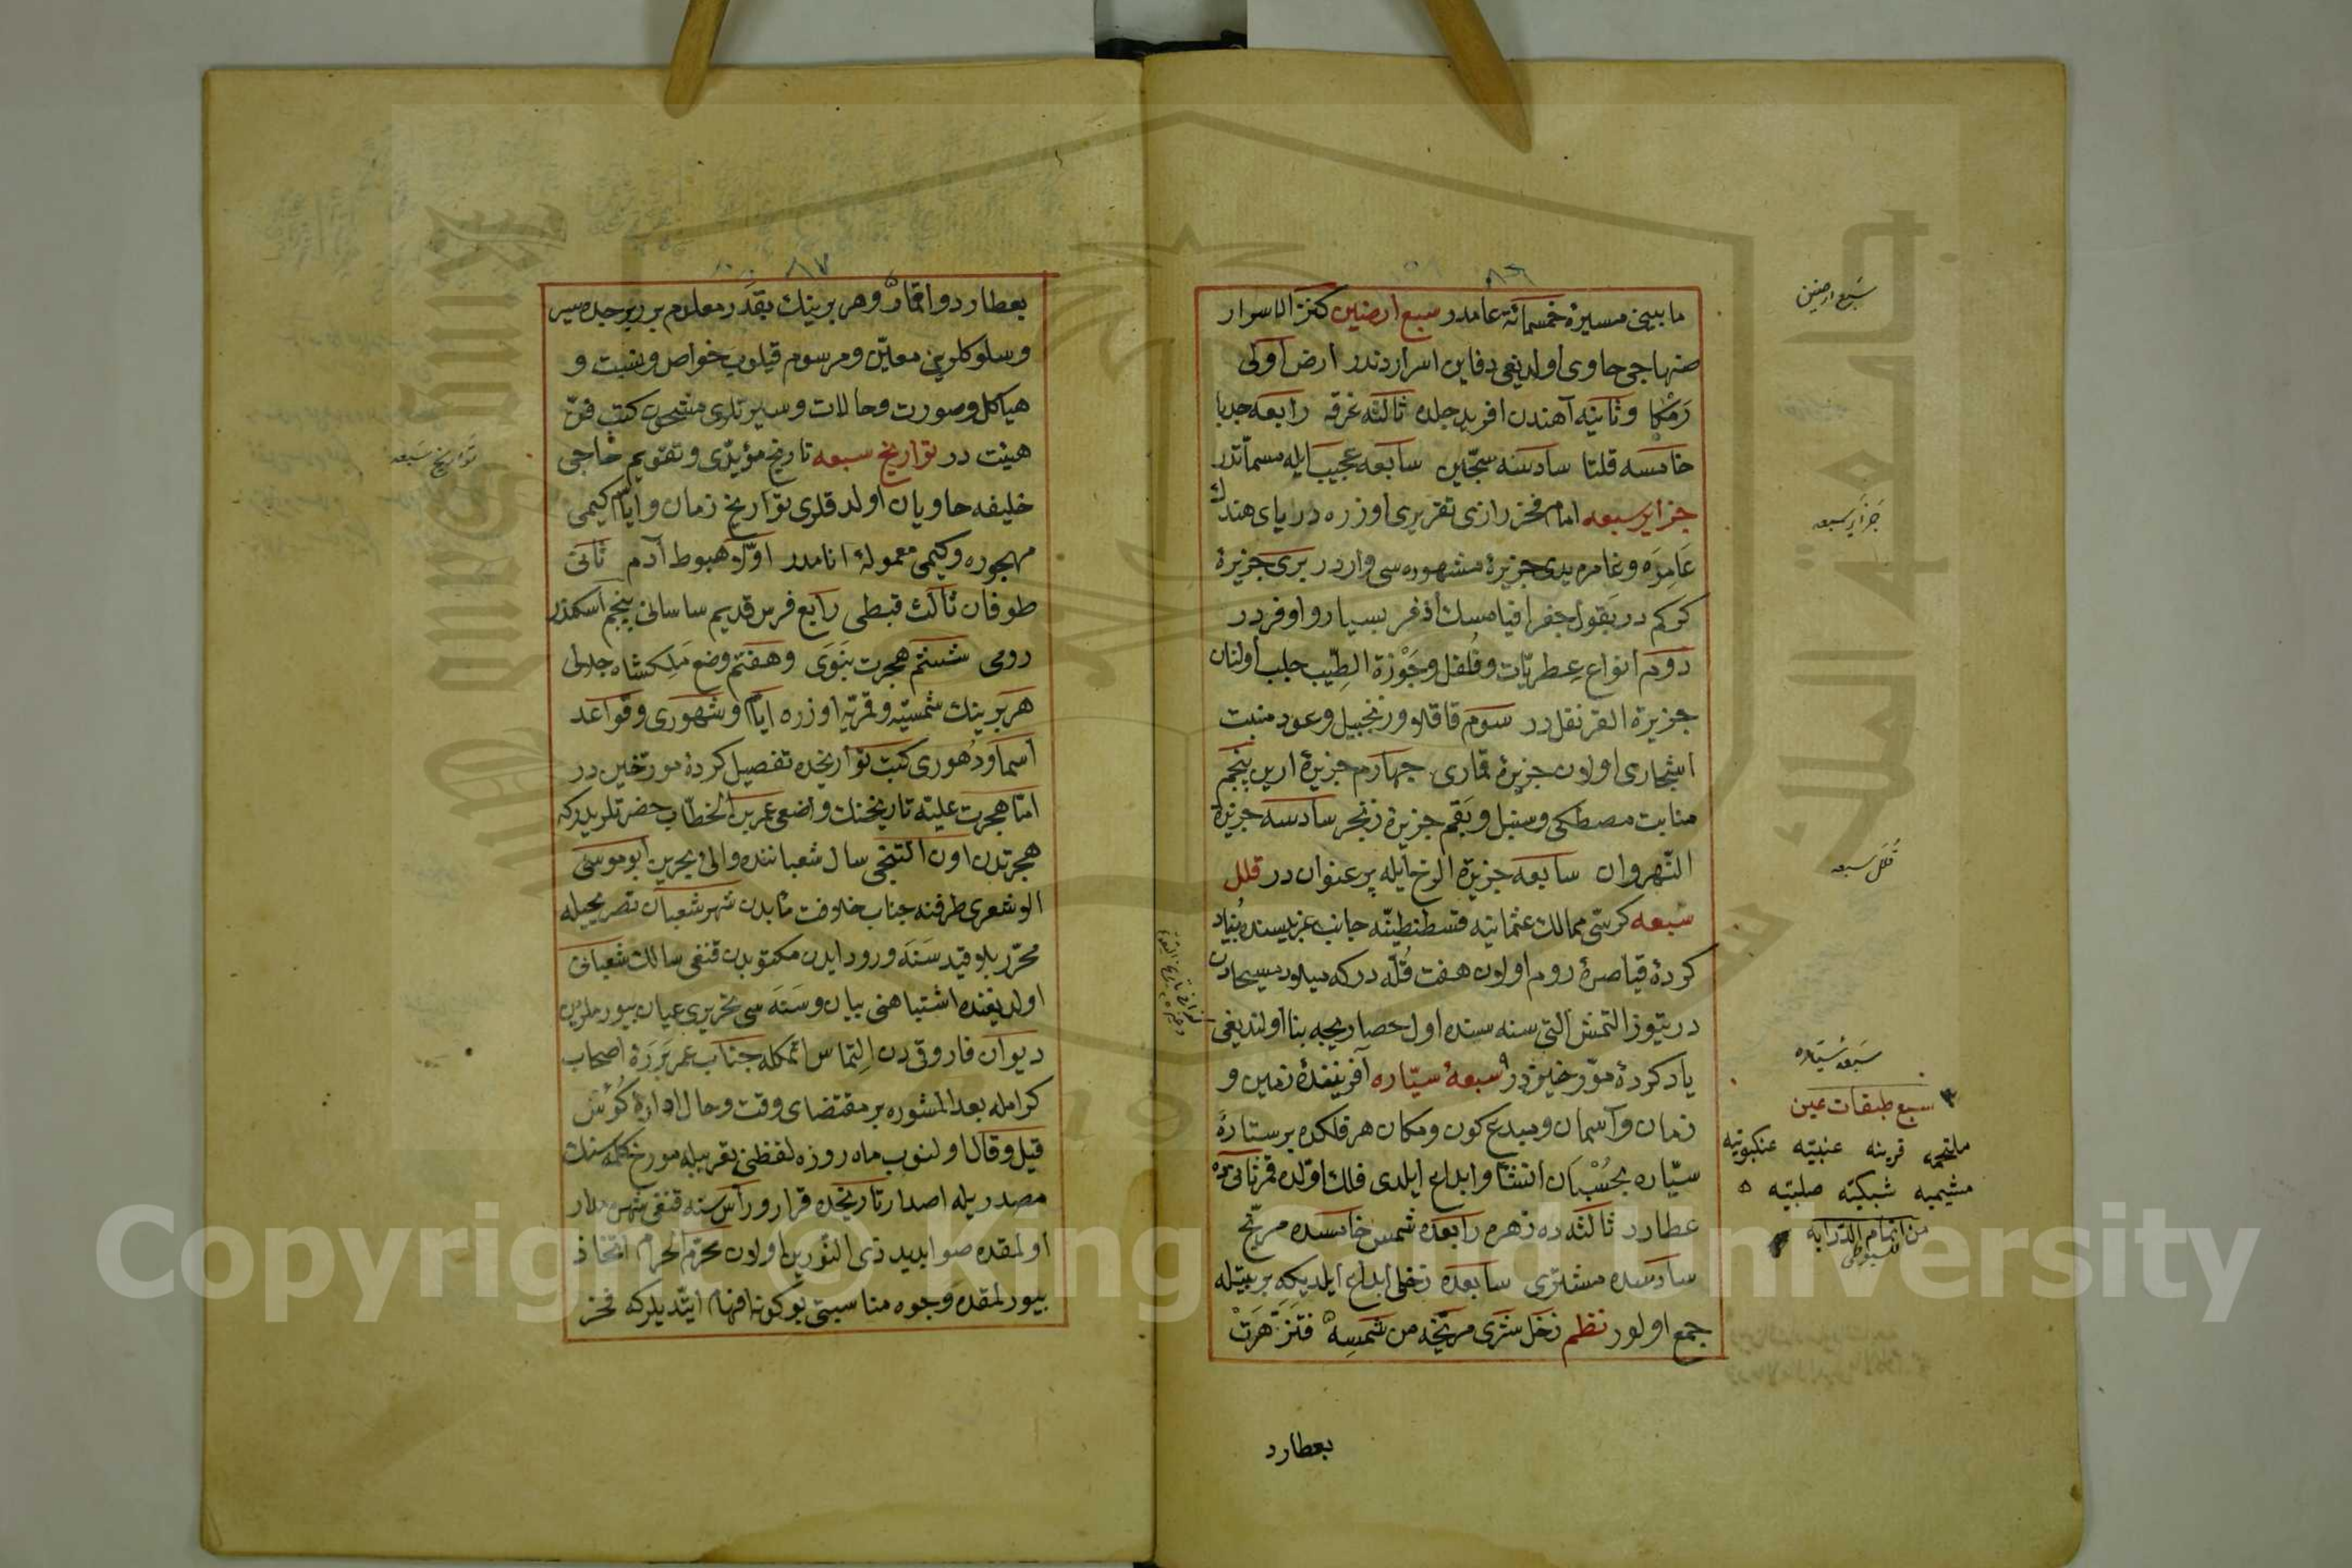 سبع ارضین
٨٦
ما بینی مسیرۀ خمسمائة عامدر سبع ارضین کنز الاسرار
منهاجی حاوی اولدیغی دفاین اسراردندر ارض اولی
رمکا وثانیه آهندن افریدجله ثالثه غرقه رابعه جدبا
خامسه قلتا سادسه سجّین سابعه عجیب ایله مسمّاتدر
جزایر سبعه امام فخر رازی تقریری اوزره دریای هندك
عامره وغامره یدی جزیرۀ مشهوره سی واردر بری جزیرۀ
کوکم در بقول جغرافیا مسك اذفر بسیار واوفردر
دوم انواع عطریّات وفلفل وجوزة الطیّب جلب اولنان
جزیرة القرنفلدر سوم قاقله وزنجبیل وعود منبت
اشجاری اولان جزیرۀ قماری چهارم جزیرۀ ارین پنجم
منابت مصطکی وسنبل وبقم جزیرۀ زنجر سادسه جزیرۀ
النّهروان سابعه جزیرة الرخ ایله پر عنوان در قلل
سبعه کرسّی ممالك عثمانیه قسطنطینّه جانب غربیسنده بنیاد
کردۀ قیاصرۀ روم اولان هفت قلّه درکه میلاد مسیحادن
درتیوز التمش التی سنه سنده اول حصار یجه بنا اولندیغی
یاد کردۀ مورّخین در سبعۀ سیّاره آفرینندۀ زمین و
زمان وآسمان ومبدع کون ومکان هر فلکده بر ستارۀ
سیّاره بحسبان انشا وابداع ایلدی فلك اولده قمر ثانی ده
عطارد ثالثه ده زهره رابعده شمس خامسده مرّیخ
سادسده مشتری سابعده زحلی ابداع ایلدیکه بر بیتله
جمع اولور نظم زحل شری مریخه من شمسه فتزهرت
بعطارد
جزایر سبعه
قلل سبعه
سبعۀ سیّاره
سبع طبقات عین
ملتحمه قرنیه عنبیّه عنکبوتیه
مشیمیه شبکیّه صلبیّه
من اتمام الدرایه
للسیوطی
٨٧
بعطارد واقمار وهر برینك بقدر معلوم بربر جله سیر
وسلوکلرین معیّن ومرسوم قیلوب خواص ونسبت و
هیاکل وصورت وحالات وسیرتلری مشحون کتب فنّ
هیئت در تواریخ سبعه تاریخ مؤیدی وتقویم حاجی
خلیفه حاویان اولدقلری تواریخ زمان وایّام کیمی
مهجوره وکیمی معمولۀ انامدر اوّلا هبوط آدم ثانی
طوفان ثالث قبطی رابع فرس قدیم ساسانی پنجم اسکندر
رومی ششم هجرت نبوی وهفتم وضع ملکشاه جلالی
هر برینك شمسیّه وقمریّه اوزره ایّام وشهوری وقواعد
اسما ودهوری کتب تواریخده تفصیل کردۀ مورّخین در
امّا هجرت علیّه تاریخنك واضعی عمر بن الخطّاب حضرتلریدرکه
هجرتدن اون التنجی سال شعباننده والی بحرین ابو موسی
الاشعری طرفنه جناب خلافت مآبدن شهر شعبان تصریحیله
محرّر بلا قید سنه ورود ایدن مکتوبدن قنغی سالك شعبانی
اولدیغنده اشتباهنی بیان وسنه سی تحریری عیان بیورملرین
دیوان فاروقی دن التماس اتمکله جناب عمر بررۀ اصحاب
کرامله بعد المشوره بر مقتضای وقت وحال ادارۀ کؤس
قیل وقال اولنوب ماه روزه لفظنی تعریبله مورخ کلمه سنك
مصدریله اصدار تاریخده قرار ورأس سنه قنغی شهر مدار
اولمقده صوابدید ذی النّورین اولان محرّم الحرام اتخاذ
بیورلمقده وجوه مناسبتی بو کونه افهام ایتدیلرکه فخر
تواریخ سبعه